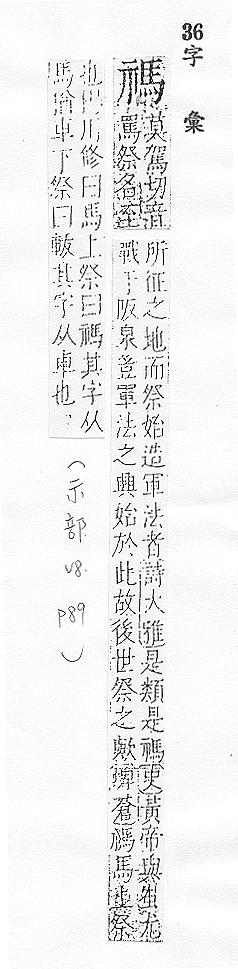 36 字彙
禡
莫駕切音
罵祭名
所征之地而祭始造軍法者詩大雅是類是禡史黃帝與蚩尤
戰于阪泉登軍法之興始於此故後世祭之歟埤蒼禡馬上祭
也用修曰馬上祭曰禡其字从
馬踰車下祭曰軷其字从車也。
(示部 v8. P89)